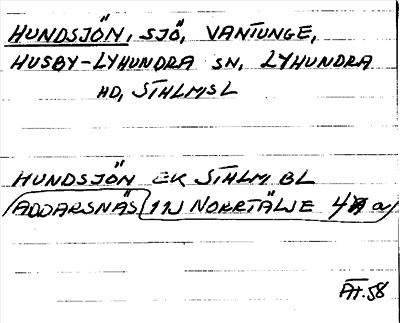 HUNDSJÖN, SJÖ, VANTUNGE,
HUSBY-LYHUNDRA SN, LYHUNDRA
HD, STHLMSL
HUNDSJÖN EK STHLM BL
ADDARSNÄS 11J NORRTÄLJE 4 a
ÄT. 58